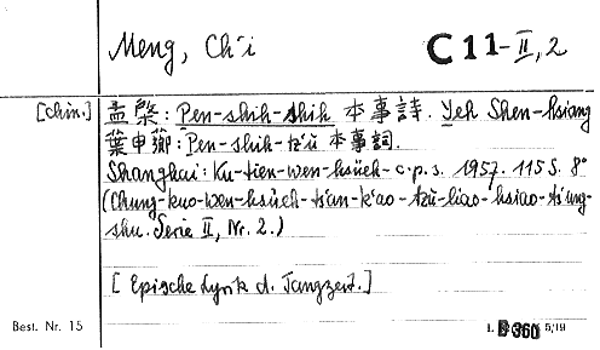 Meng, Ch'i
C 11-II,2
[chin.] 孟棨: Pen-shih-shih 本事詩. Yeh Shen-hsiang
葉申薌: Pen-shih-tz'ŭ 本事詞.
Shanghai: Ku-tien-wen-hsüeh-c.p.s. 1957. 115 S. 8°
(Chung-kuo-wen-hsüeh-ts'an-k'ao-tzŭ-liao-hsiao-ts'ung-
shu. Serie II, Nr. 2.)
[Epische Lyrik d. Tangzeit.]
Best. Nr. 15
I. B 360 5/19